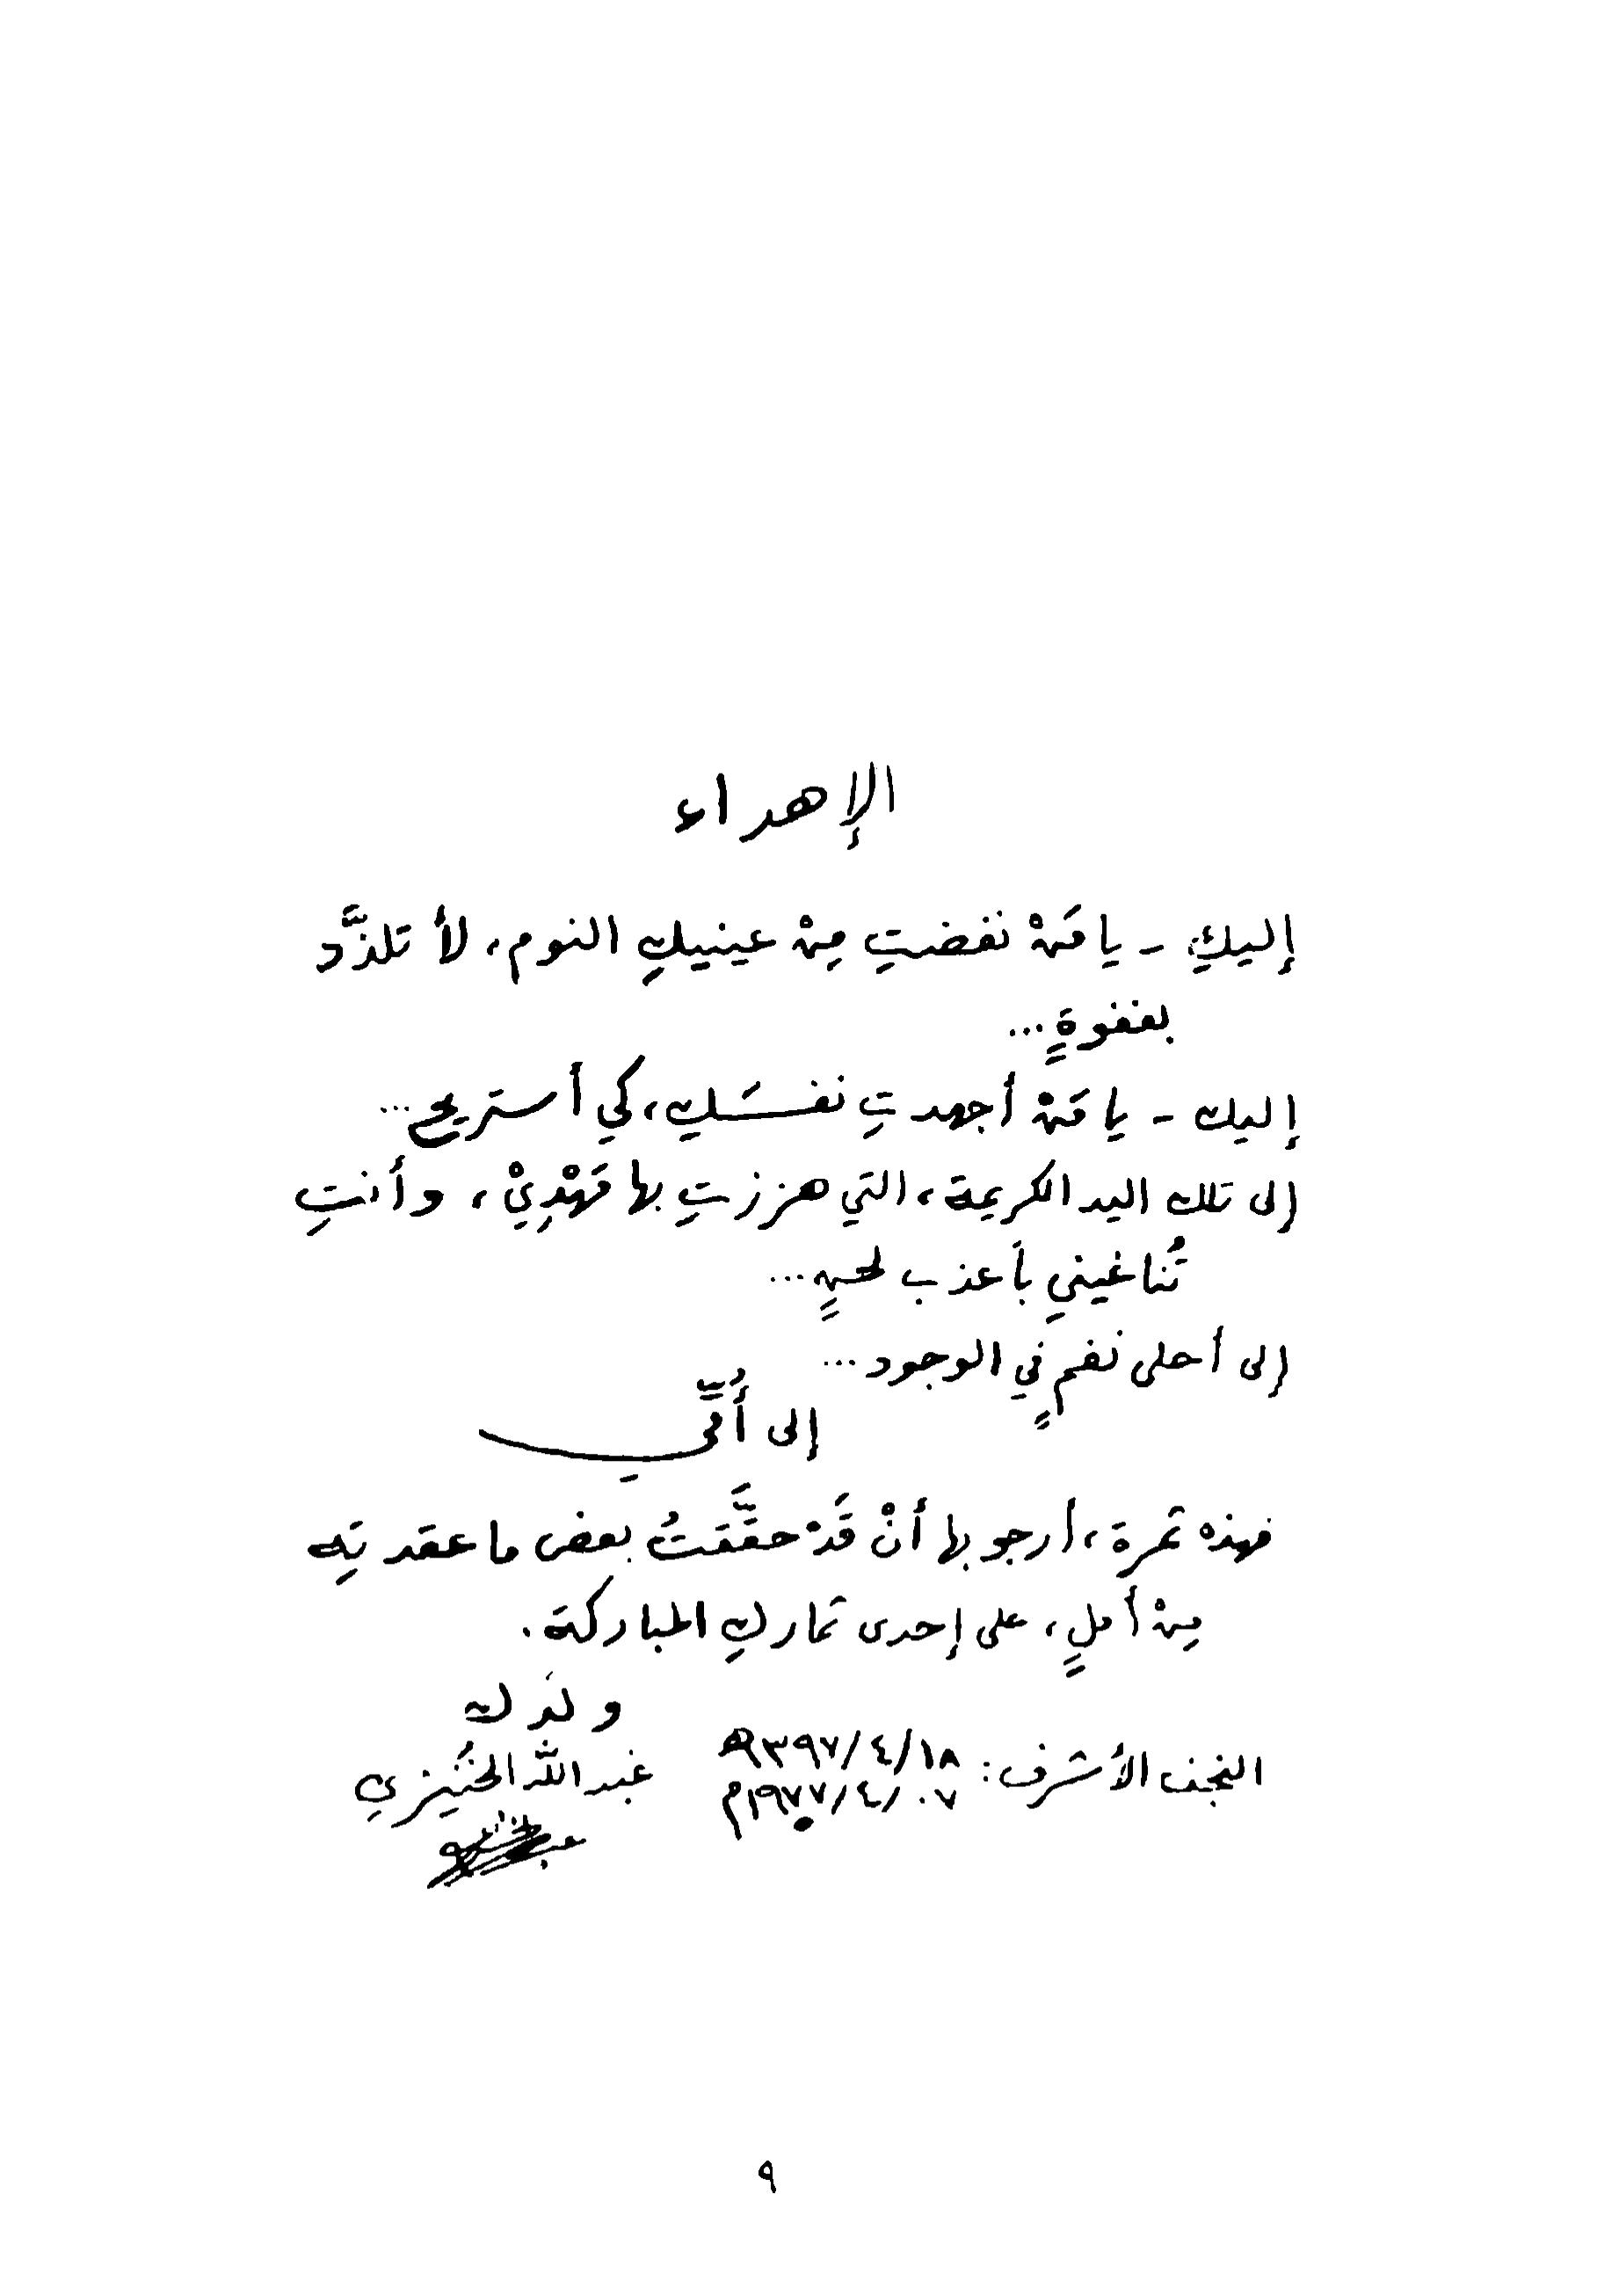 الإهداء
إليكِ - يا مَنْ نفضتِ مِنْ عينيكِ النوم، لأتلذَّذ
بغفوةٍ...
إليك - يا مَنْ أجهدتِ نفسَكِ، كي أستريح...
إلى تلك اليد الكريمة، التي هززتِ بها مَهْدِيْ، وأنتِ
تُناغيني بأعذب لحنٍ...
إلى أحلى نغمٍ في الوجود...
إلى أُمِّي
فهذه ثمرة، أرجو بها أنْ قَدْ حقَّقتُ بعض ما عقدتِه
مِنْ أملٍ، على إحدى ثمارِكِ المباركة.
ولدك
النجف الأشرف: ١٨/٤/١٣٩٧هـ
٠٧/٤/١٩٧٧م
عبدالله الخُنَيزي
٩